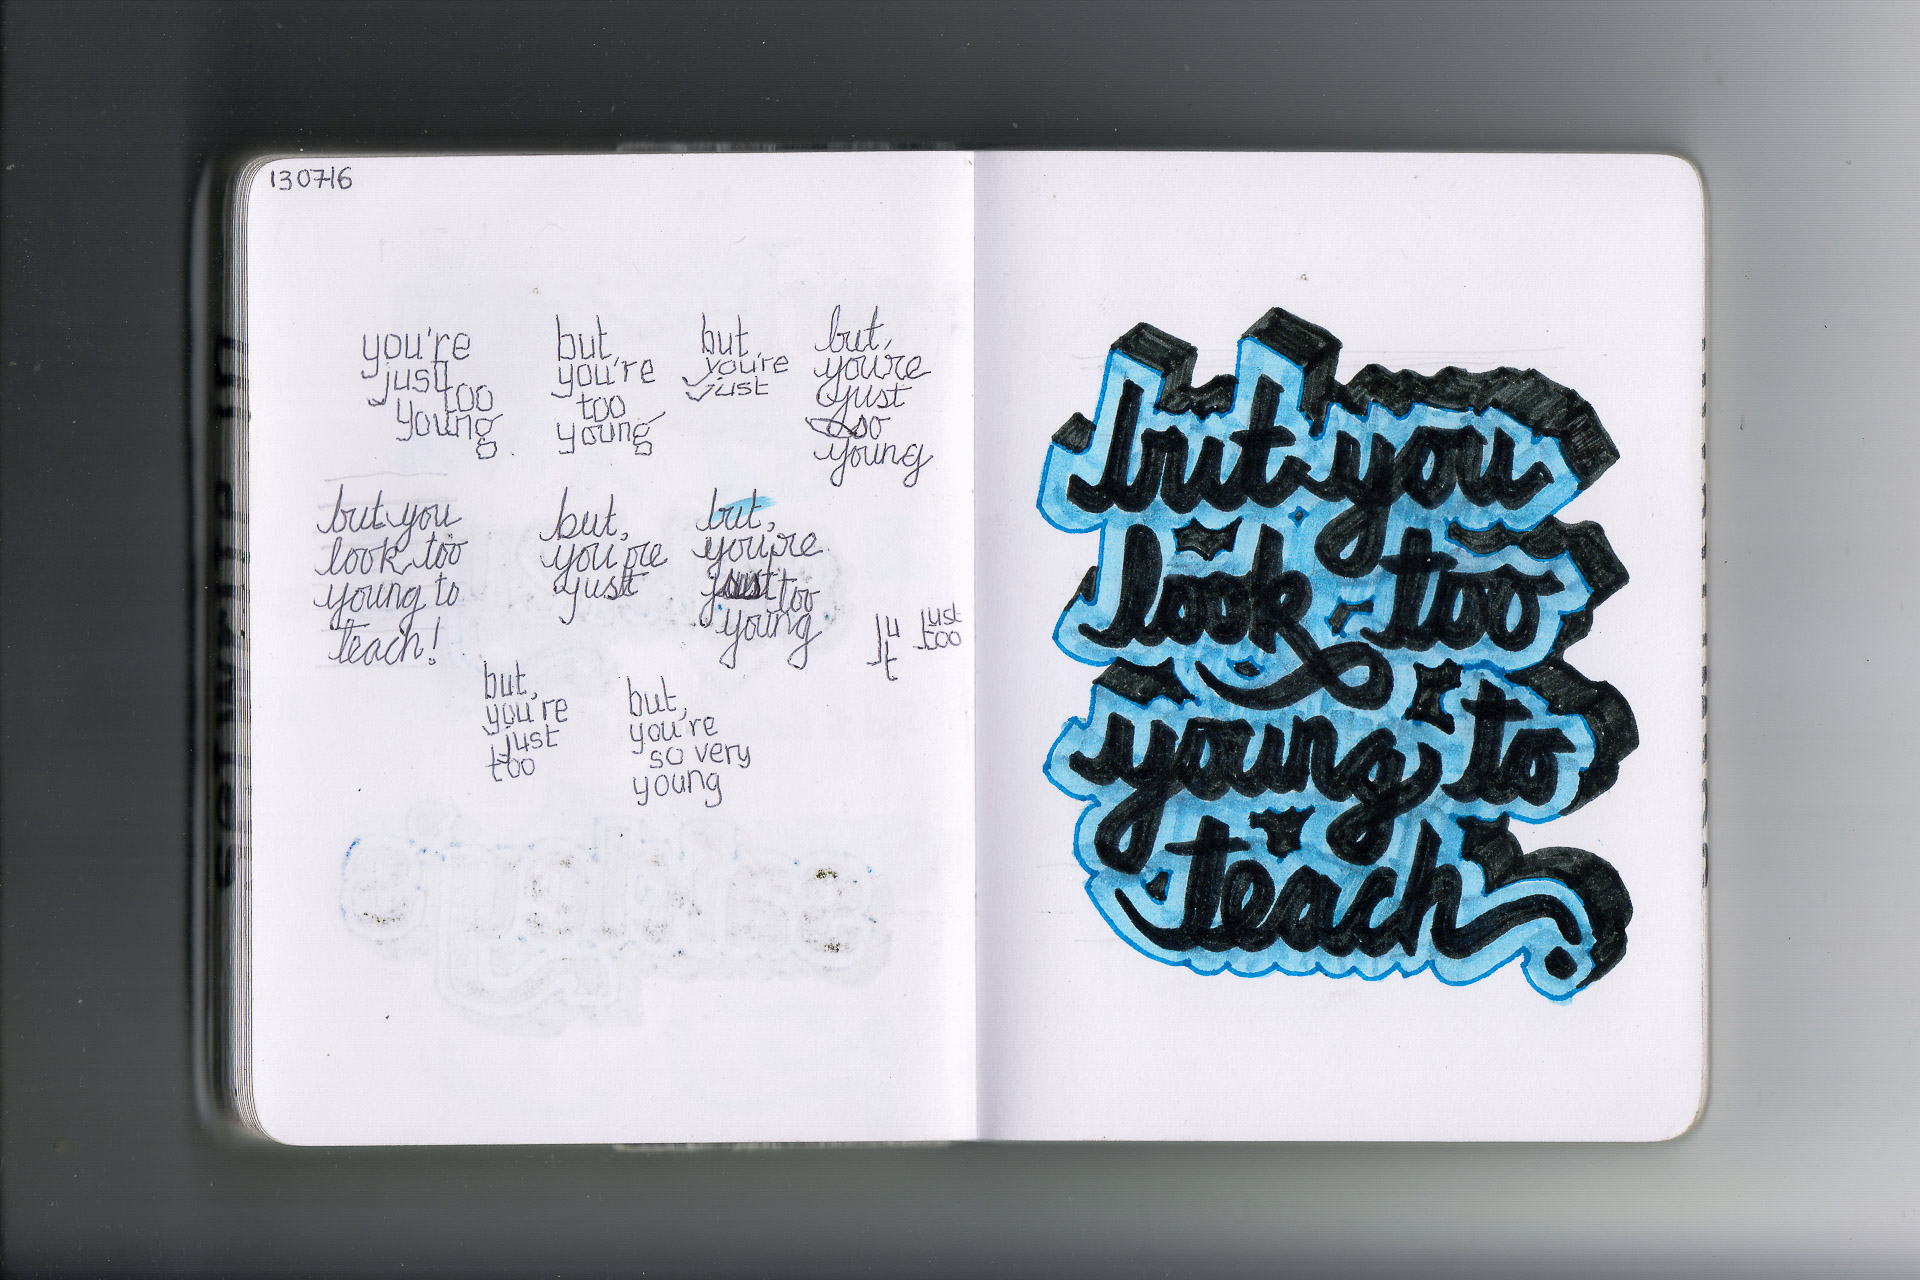 130716
you're
just
too
young
but,
you're
too
young
but,
you're
just
but,
you're
just
so
young
but you
look too
young to
teach!
but,
you're
just
but,
you're
just too
young
ju
t
just
too
but,
you're
just
too
but,
you're
so very
young
but you
look too
young to
teach